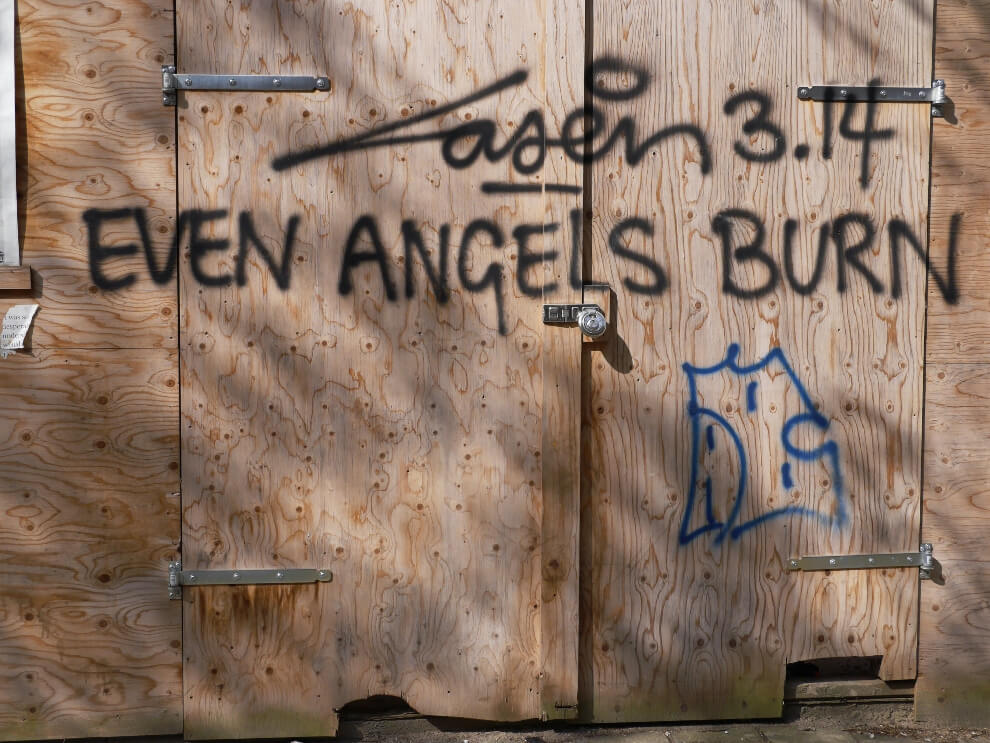 Laser 3.14
EVEN ANGELS BURN